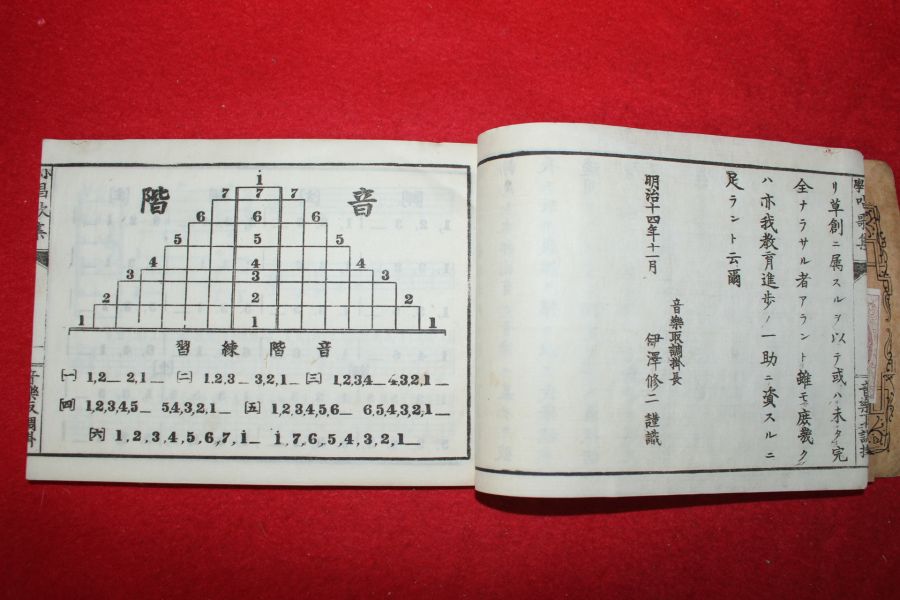 リ草創ニ属スルヲ以テ或ハ未タ完
全ナラサル者アラント雖モ庶幾ク
ハ亦我教育進歩ノ一助ニ資スルニ
足ラント云爾
明治十四年十一月
音樂取調掛長
伊澤修二謹識
音階
i
7 7 7
6 6 6
5 5 5
4 4 4
3 3 3
2 2 2
1 1 1
音階練習
(一) 1,2_ 2,1_ (二) 1,2,3_ 3,2,1_ (三) 1,2,3,4_ 4,3,2,1_
(四) 1,2,3,4,5_ 5,4,3,2,1_ (五) 1,2,3,4,5,6_ 6,5,4,3,2,1_
(六) 1,2,3,4,5,6,7,i_ i,7,6,5,4,3,2,1_